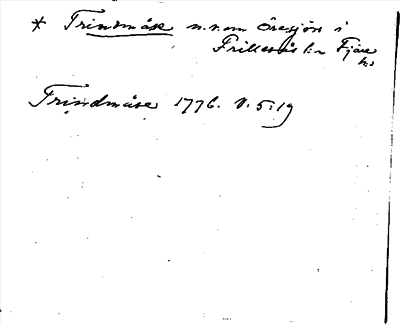 * Trindmåse n.v.om Öresjön i
Frillesås l:n Fjäre
hd
Trindmåse 1776. V. 5:19